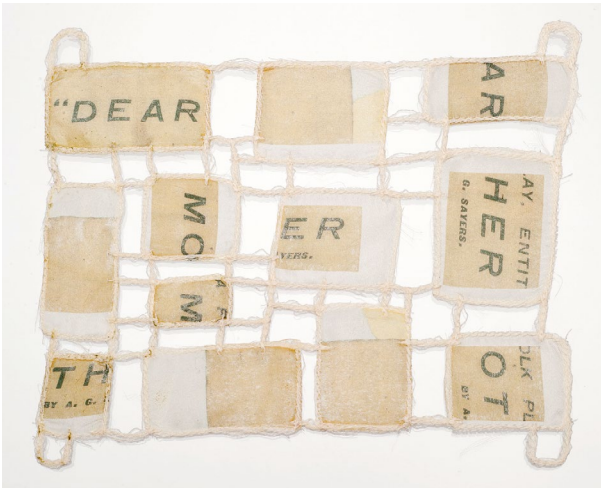 "DEAR
AR
MO
ER
YERS.
AY, ENTIT
HER
G. SAYERS.
M
TH
BY A. G.
OLK PL
OT
BY A.